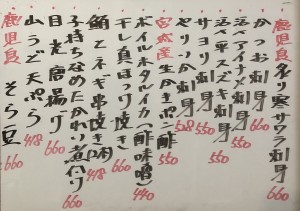 鹿児島 炙り寒サワラ刺身 660
かつお刺身 660
活〆アイナメ刺身 660
活〆平スズキ刺身 550
サヨリ刺身 550
やりいか刺身 508
宮城産 生かきポン酢 550
ボイルホタルイカ(酢味噌) 440
干し真ほっけ焼き 660
鮪とネギ串焼き 478
子持ちなめたかれい煮付け 660
目光唐揚げ 660
山うど天ぷら 418
鹿児島 そら豆 660